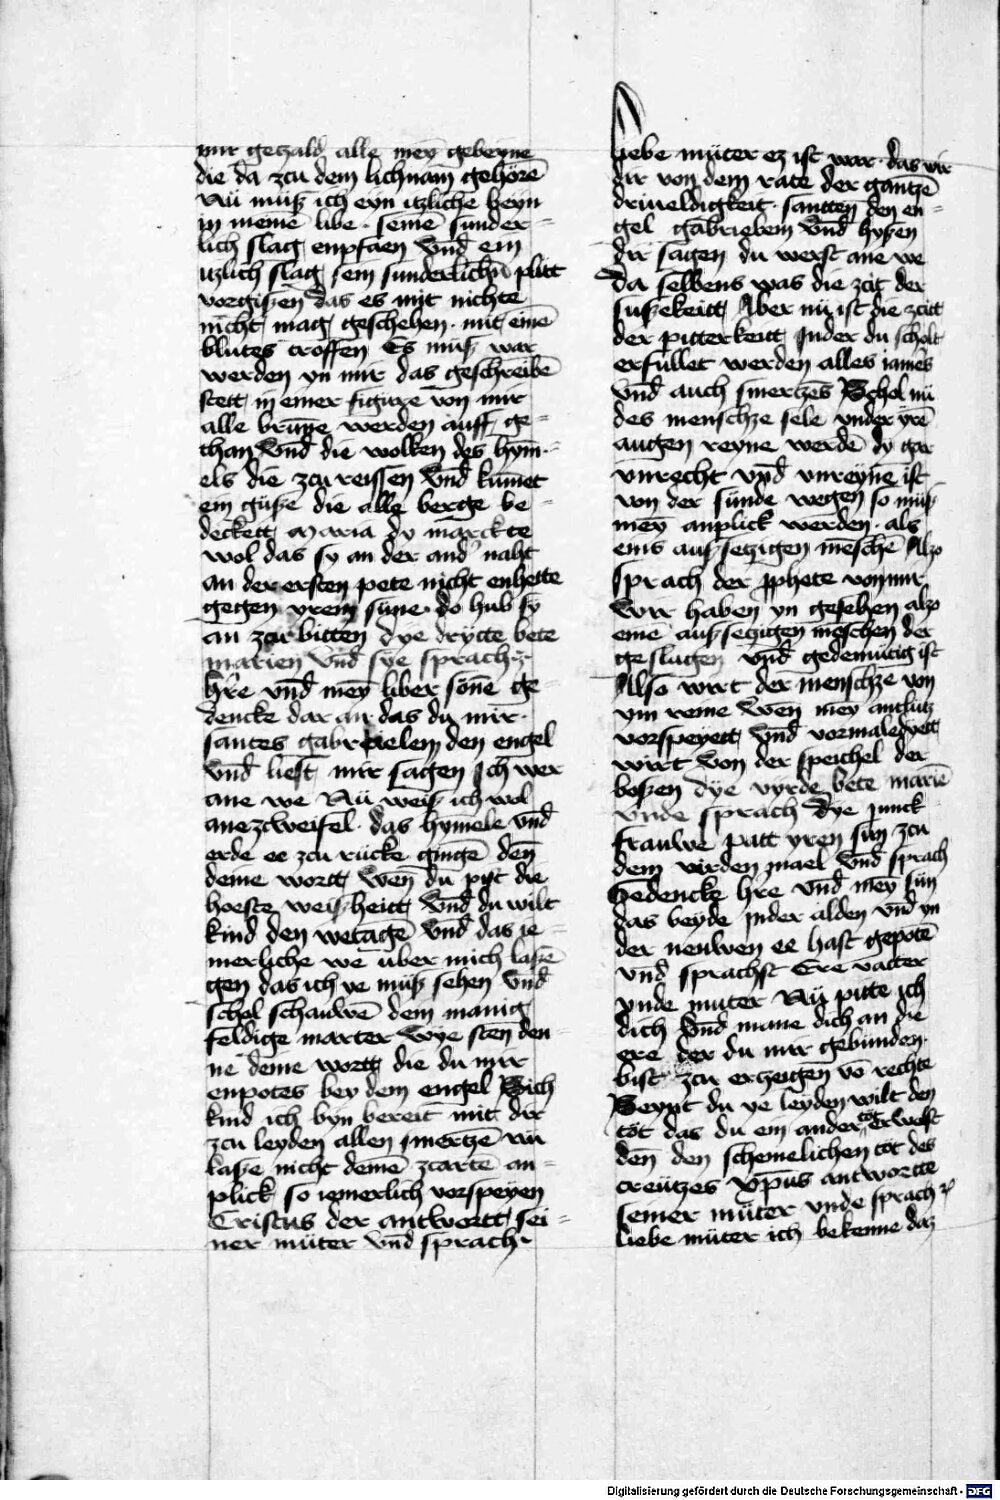 mir geczald alle mey̅ gebeyne
die da zcu dem lichnam̅ gehöre̅
Nü müß ich eyn itzliche beyn
in meine̅ libe · seine̅ sunder-
lich slag enpfaen vnd̅ ein
itzlich slag sein sunderlichn̅ plüt
vorgißen das es mit nichte
nicht mag geschehen · mit eine̅
blutes troffen Es müß war
werden yn mir das geschreibe̅
stett in einer figure von mir
alle brüne̅ werden auff ge-
than vnd̅ die wolken des hym̅-
els die zcu reissen vnd̅ kümet
ein güße die alle berge be-
deckett Maria dy marckte
wol das sy an der and' naht
an der ersten pete nicht enhette
gegen yrem süne · do hub sy
an zcu bitten dye drytte bete
marien vnd̅ sye sprach
hr̅e vnd̅ mey̅ liber söne̅ ge-
dencke dar an das du mir ·
santes gabrielem den engel
vnd̅ liest mir sagen Ich wer
ane we Nü weiß ich wol
anezcweifel · das hymele vnd̅
erde ee zcu rücke ginge̅ den̅
deine wortt wen̅ du pist die
hoeste weißheitt vnd̅ du wilt
kind den wetage̅ vnd̅ das ie-
merliche we über mich laße̅
gen das ich ye müß sehen vnd̅
schol schauwe̅ dem manig
feldige marter wye sten den-
ne deine wortt die du mir
enpotes bey dem engel Sich
kind ich byn bereit mit dir
zcu leyden allen smertze̅ nü
laße nicht deine̅ zcarte̅ an-
plick so iemerlich vorspeyen
Cristus der antwortt sei-
ner müter vnd̅ sprach
liebe müter ez ist war · das wir
dir von dem rate der gantze̅
driueldigkeit · santten den en-
gel gabrielem vnd̅ hyßen
dir sagen du werst ane we
Da selbens was die zcit der
sußekeitt Aber nü ist die zcitt
der pitterkeitt Inder du scholt
erfüllet werden alles iam̅s
vnd̅ auch smertzes Schol nü
des menschze sele vnder yre̅
augen reyne werde̅ dy gar
vnrecht vnd̅ vnreyne ist
von der sünde wegen so müß
mey̅ anplick werden · als
eins außsetzigen me̅sche̅ Alzo
sprach der pphete von mir
Wir haben yn gesehen alzo
eine̅ außsetzigen me̅schen der
geslagen vnd̅ gedemütig ist
Also wirt der menschze von
ym reine Wen mey̅ antlütz
vorspeyett vnd̅ vormaledyett
wirt von der speichel der
boßen dye vyrde bete marie̅
vnde sprach Dye junck
frauwe patt yren sün zcu
dem virden mael vnd̅ sprach
Gedencke hr̅e vnd̅ mey̅ sün
das beyde Inder alden vnd̅ yn
der neuwen ee hast gepote̅
vnd̅ sprachst Ere vatter
vnde muter Nü pitte ich
dich vnd̅ mane dich an die
ere der du mir gebunden ·
bist zcu erzeigen vo̅ rechte
Seynt du ye leyden wilt den
töt das du ein ander töt erwelst
den̅ den schemelichen tot des
creützes xp̅us antwortte
seiner müter vnde sprach
liebe müter ich bekenne daz
Digitalisierung gefördert durch die Deutsche Forschungsgemeinschaft - DFG